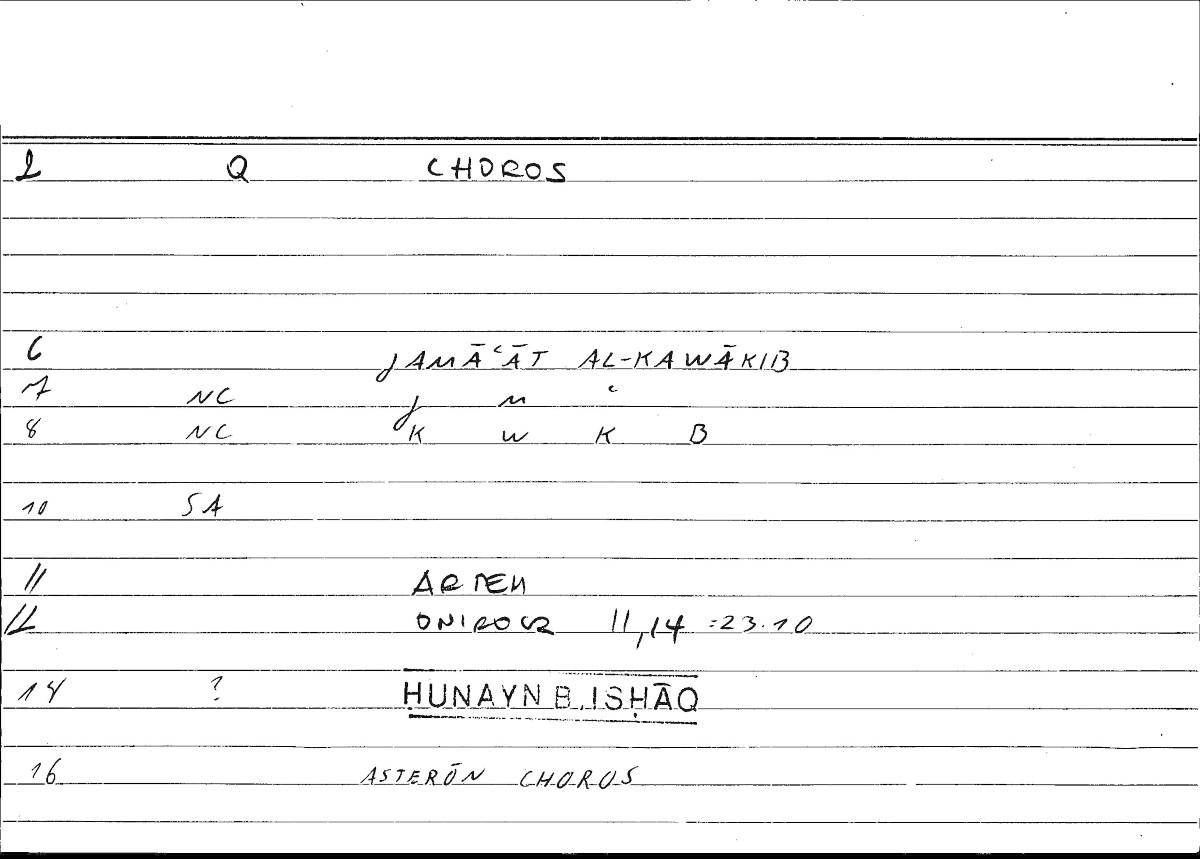 2 Q CHOROS
6 JAMĀʿĀT AL-KAWĀKIB
7 NC J M ʿ
8 NC K W K B
10 SA
11 ARTEM
12 ONIROCR 11,14 =23.10
14 ? ḤUNAYN B. ISḤĀQ
16 ASTERŌN CHOROS